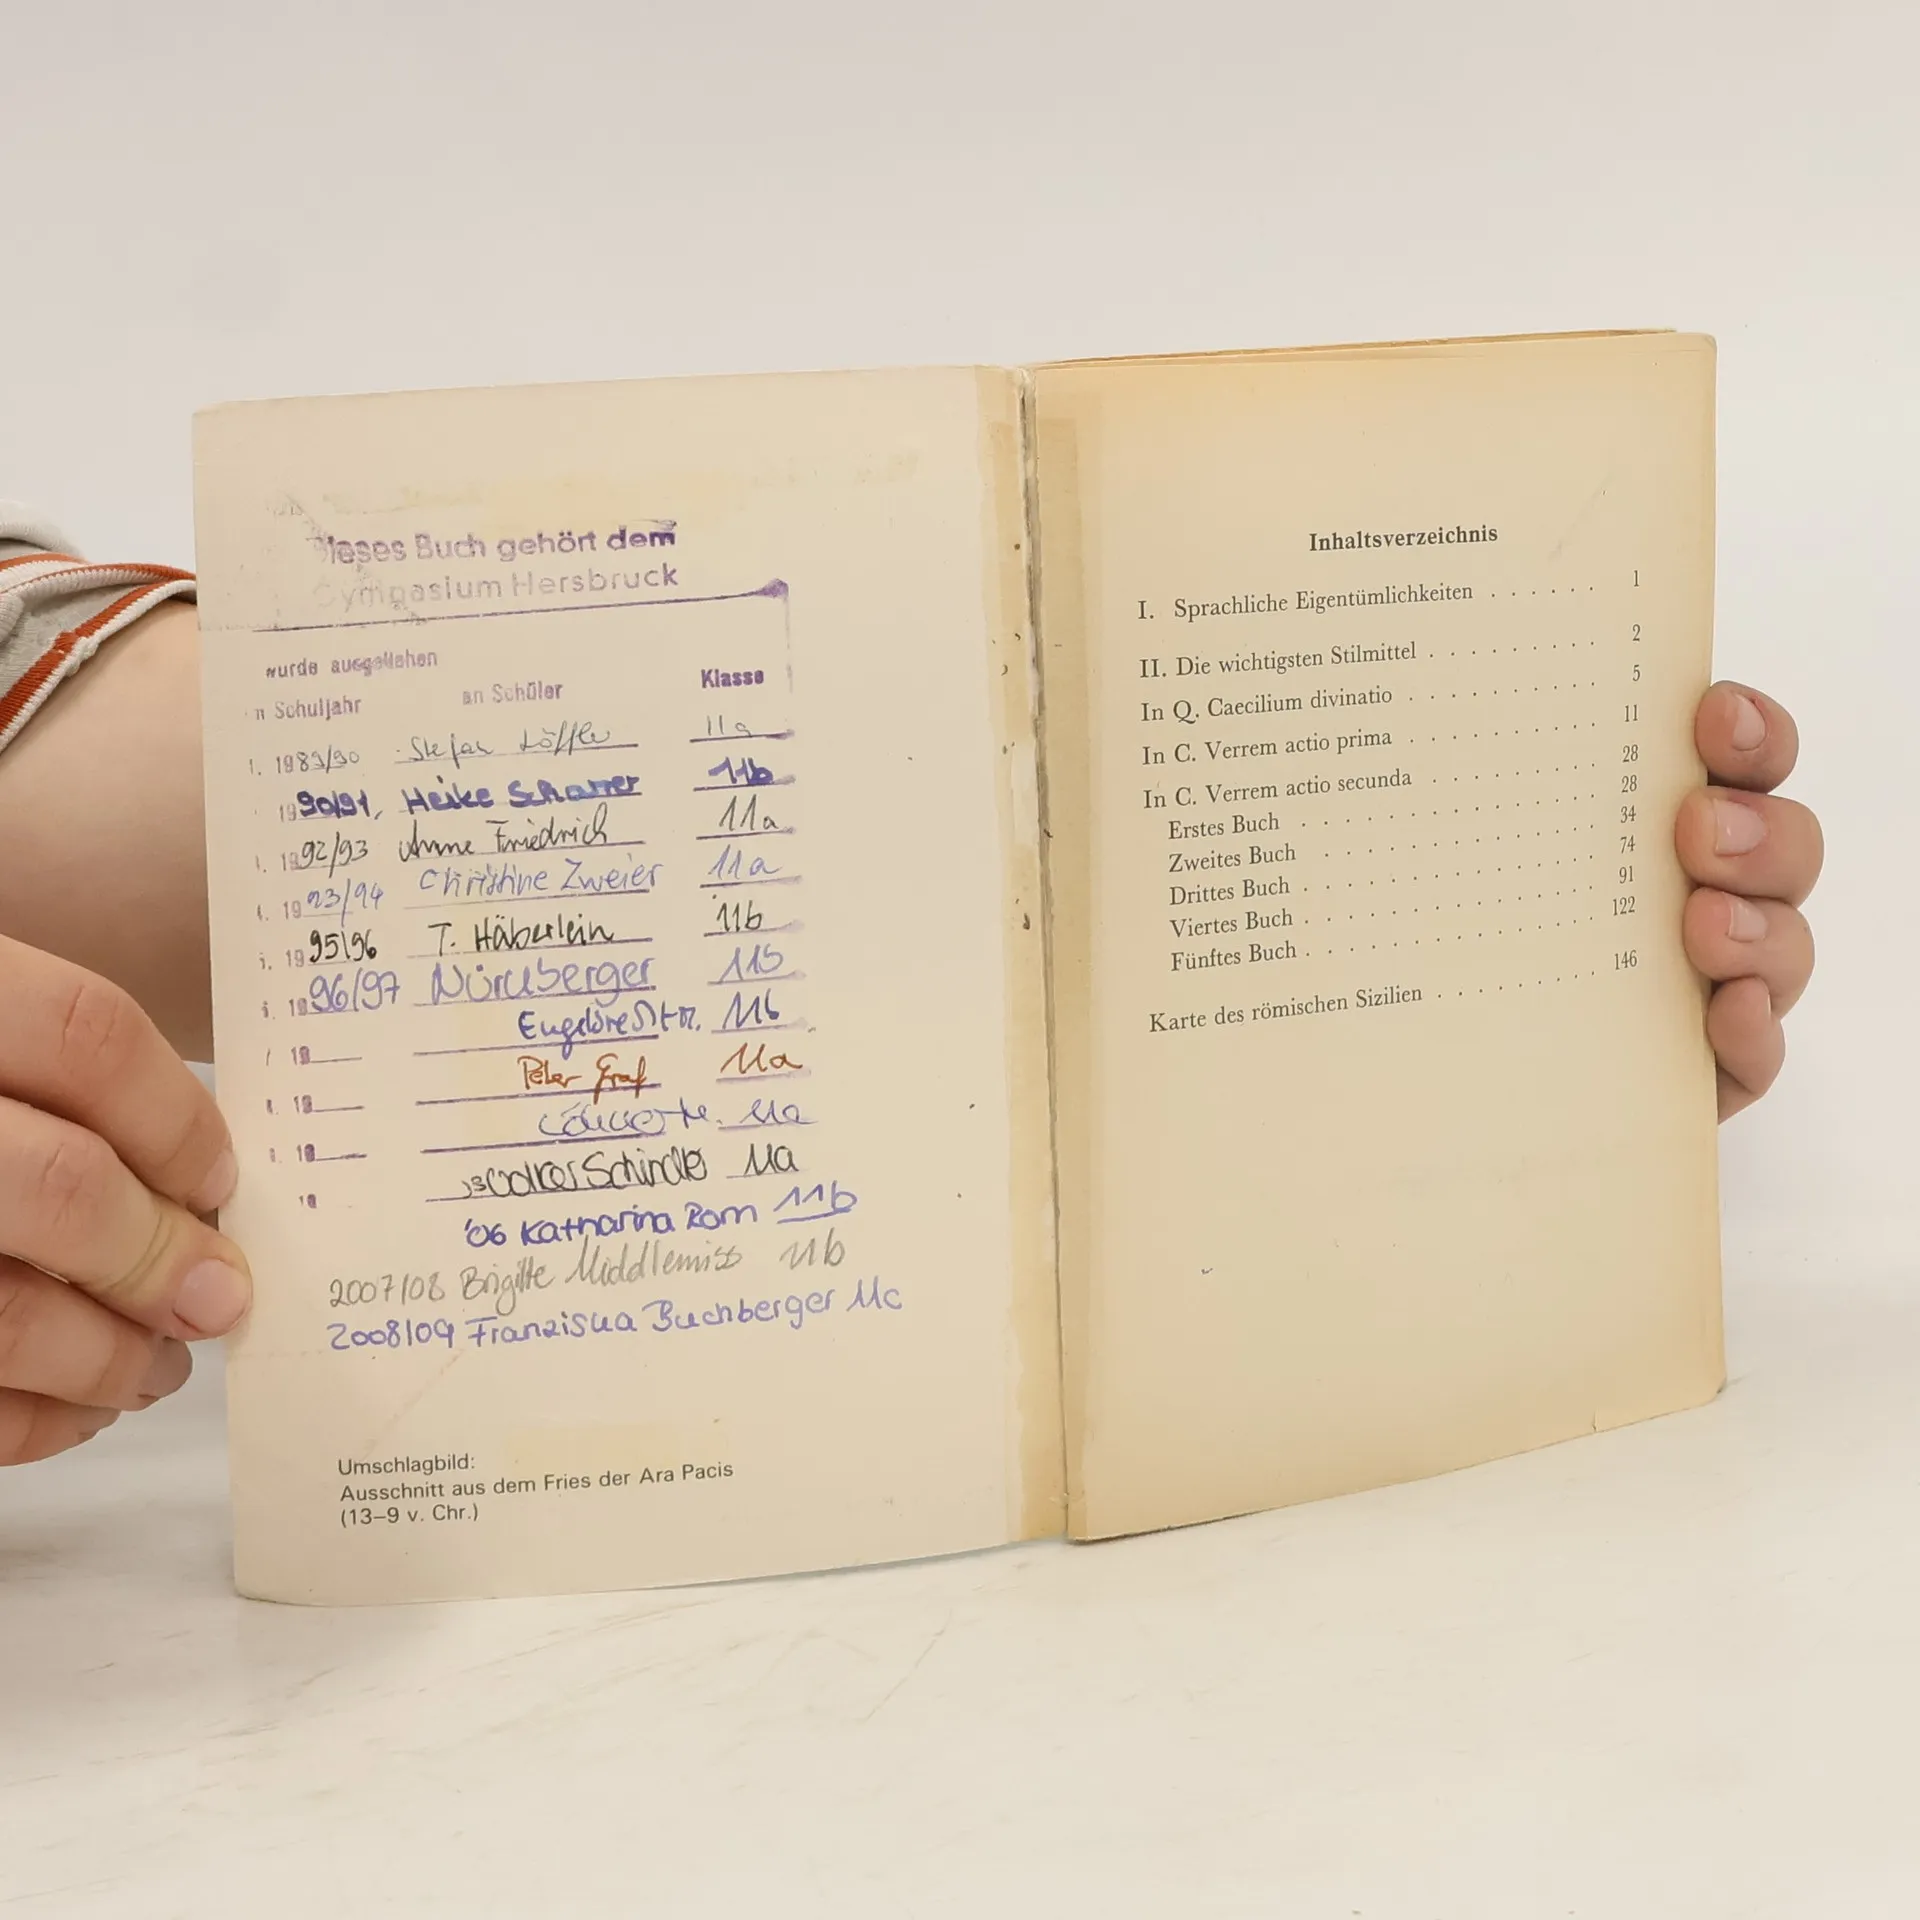 Dieses Buch gehört dem
Gymnasium Hersbruck
wurde ausgeliehen
Schuljahr an Schüler Klasse
1. 1989/90 Stefan Löffler 11a
1990/91, Heike Scharrer 11b
1992/93 Anne Friedrich 11a
1993/94 Christine Zweier 11a
1995/96 T. Häberlein 11b
1996/97 Nürnberger 11b
19 11b
19 Peter Graf 11a
19 11a
19 Schindler 11a
'06 Katharina Rom 11b
2007/08 Brigitte Middlemiss 11b
2008/09 Franziska Buchberger 11c
Umschlagbild:
Ausschnitt aus dem Fries der Ara Pacis
(13–9 v. Chr.)
Inhaltsverzeichnis
I. Sprachliche Eigentümlichkeiten . . . . . . 1
II. Die wichtigsten Stilmittel . . . . . . . . . 2
In Q. Caecilium divinatio . . . . . . . . . . 5
In C. Verrem actio prima . . . . . . . . . . 11
In C. Verrem actio secunda . . . . . . . . . 28
Erstes Buch . . . . . . . . . . . . . . 28
Zweites Buch . . . . . . . . . . . . . 34
Drittes Buch . . . . . . . . . . . . . . 74
Viertes Buch . . . . . . . . . . . . . . 91
Fünftes Buch . . . . . . . . . . . . . . 122
Karte des römischen Sizilien . . . . . . . . 146